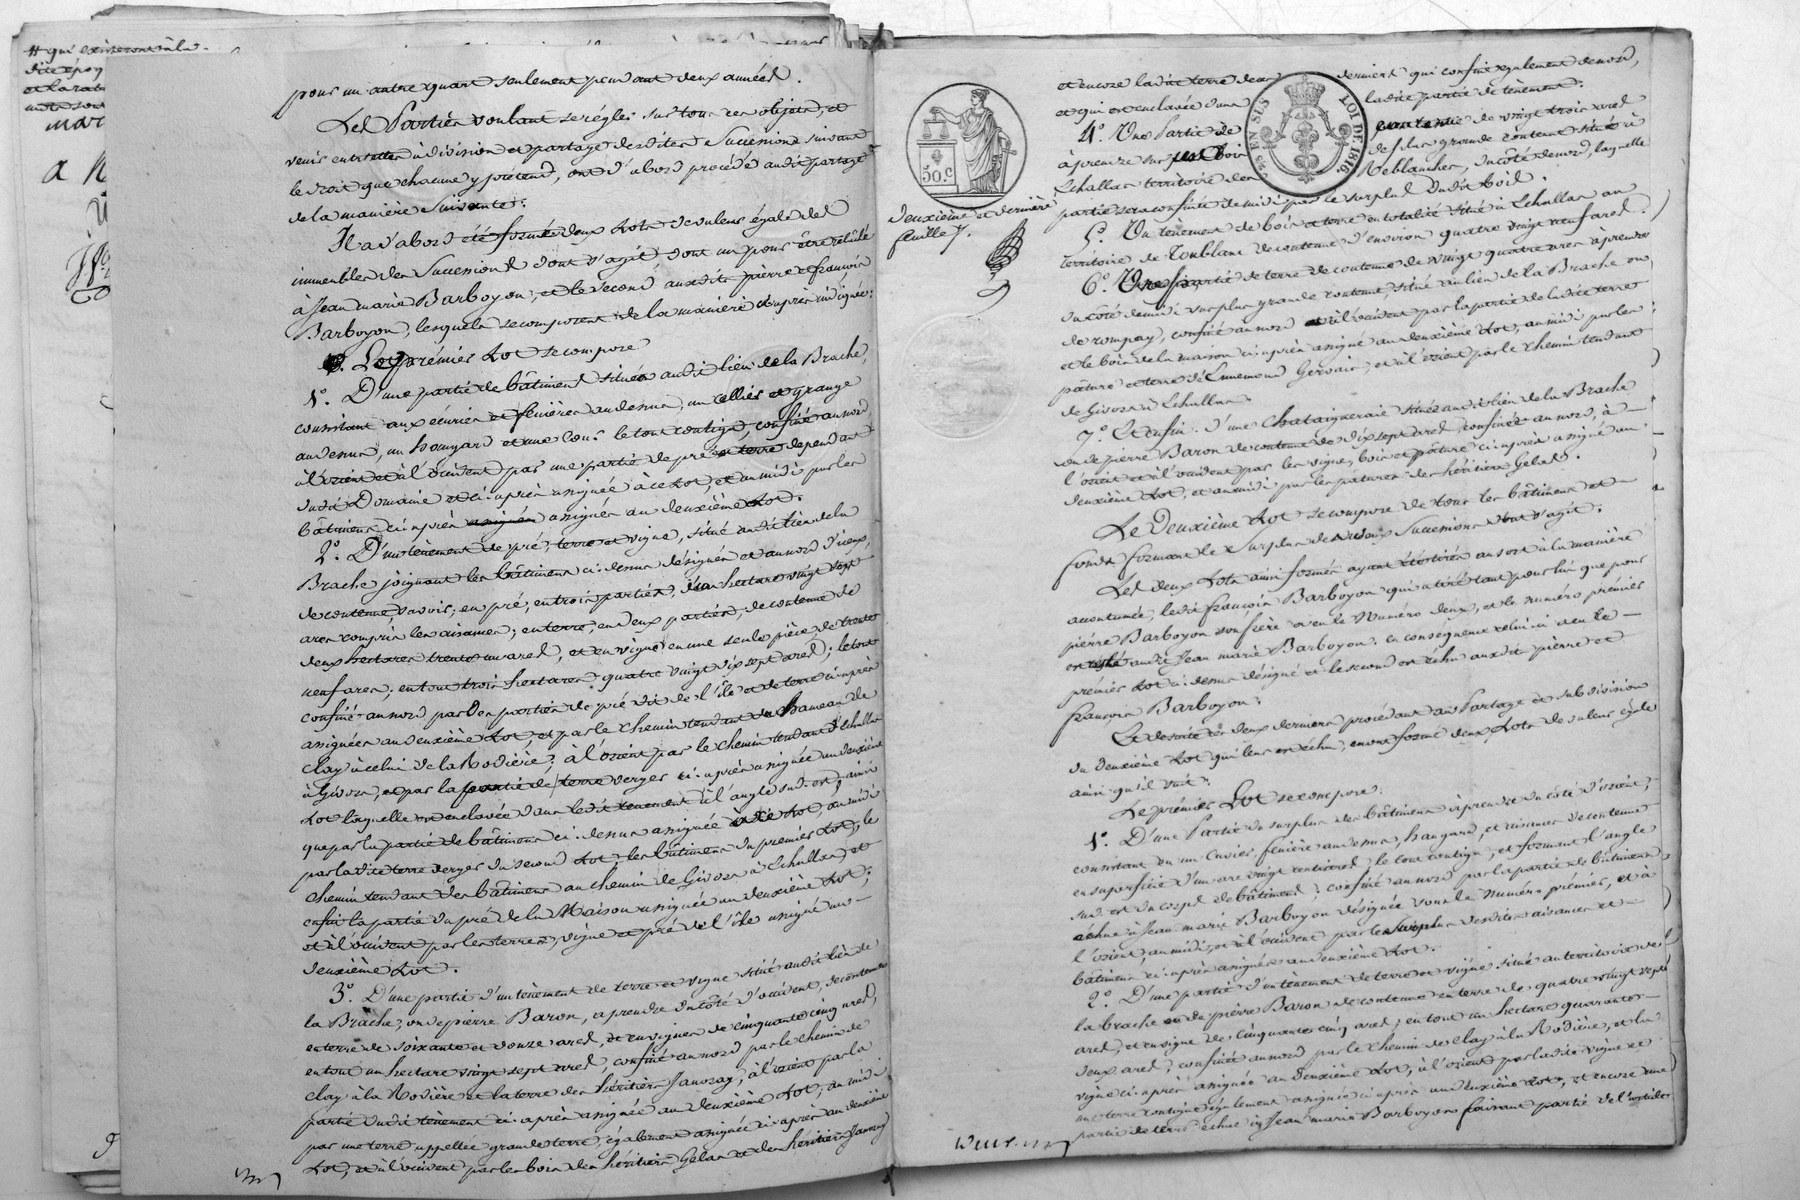 # qui
pour un autre quart seulement pendant deux années.
Les Parties voulant se régler sur tous ces objets, et
venir entr'elles à division et partage desdites Successions suivant
le droit que chacune y prétend, ont d'abord procédé audit partage
de la manière Suivante:
Il a d'abord été formé deux Lots de valeur égale des
immeubles des Successions dont s'agit, dont un pour être relâché
à Jean marie Barboyon, et le second auxdits pierre et françois
Barboyon, lesquels se composent de la manière ci-après indiquée:
Le premier Lot se compose
1.° D'une partie de bâtiment située audit lieu de la Brache,
consistant aux écuries et fenières au dessus, un cellier et grange
au dessus, un hangard et une cour le tout contigu, confiné au nord,
à l'orient et à l'occident par une partie de pré et terre dépendant
dudit Domaine et ci-après assignée à ce Lot, et au midi par les
bâtiments ci-après assignés au deuxième Lot.
2.° D'un tènement de pré, terre et vigne, situé audit lieu de la
Brache joignant les bâtiments ci-dessus désignés et au nord d'iceux,
de contenue, savoir; en pré, en trois parties, d'un hectare vingt sept
ares compris les aisances; en terre, en deux parties, de contenue de
deux hectares trente un ares, et en vigne en une seule pièce de trente
neuf ares; en tout trois hectares quatre vingt dix sept ares; le tout
confiné au nord par des parties de pré dit de l'île et de terre ci-après
assignées au deuxième Lot, et par le chemin tendant du hameau de
clay à celui de la Rodière; à l'orient par le chemin tendant d'Echallas
à Givors, et par la partie de terre verger ci-après assignée au deuxième
Lot laquelle est enclavée dans ledit tènement à l'angle sud-est, ainsi
que par la partie de bâtiments ci-dessus assignée au Lot, au midi
par ladite terre verger du second Lot, les bâtiments du premier Lot, le
chemin tendant des bâtiments au chemin de Givors à Echallas, et
enfin la partie du pré de la Maison assignée au deuxième Lot;
et à l'occident par les terres, vigne et pré de l'île assigné au
deuxième Lot.
3.° D'une partie d'un tènement de terre et vigne situé audit lieu de
la Brache, ou de pierre Baron, à prendre du côté d'occident, de contenue
en terre de soixante et douze ares, et en vignes de cinquante cinq ares,
en tout un hectare vingt sept ares, confiné au nord par le chemin de
clay à la Rodière et la terre des héritiers Janvray, à l'orient par la
partie dudit tènement ci-après assignée au deuxième Lot, au midi
par une terre appellée grande terre, également assignée ci-après au deuxième
Lot, et à l'occident par les bois des héritiers Gelas et des héritiers Janvray
50.c
EN SUS
LOI DE 1816
deuxième et dernière
feuille
et encore ladite terre de ces derniers qui confine également de nord,
et qui est enclavée dans ladite partie de tènement.
4.° Une Partie de contenue de vingt trois ares
à prendre sur un bois de plus grande contenue situé à
Echallas territoire des Reblanches, du côté de nord, laquelle
partie sera confinée de midi par le surplus dudit bois.
5.° Un tènement de bois et terre en totalité situé à Echallas au
territoire de Toublanc de contenue d'environ quatre vingt neuf ares.
6.° Une partie de terre de contenue de vingt quatre ares à prendre
du côté de midi sur plus grande contenue, située au lieu de la Brache ou
de rompay, confiné au nord et à l'occident par la partie de ladite terre
et le bois de la maison ci-après assigné au deuxième Lot, au midi par les
pâture et terre d'Ennemond Gervais; et à l'orient par le chemin tendant
de Givors à Echallas.
7.° Et enfin d'une chataigneraie située audit lieu de la Brache
ou de pierre Baron de contenue de dix sept ares, confinée au nord, à
l'orient et à l'occident par les vigne, bois et pâture ci-après assignés au
deuxième Lot, et au midi par les patures des héritiers Gelas.
Le Deuxième Lot se compose de tous les bâtiments et
fonds formant le Surplus desdites Successions dont s'agit.
Les deux Lots ainsi formés ayant été tirés au sort à la manière
accoutumée, ledit françois Barboyon qui a tiré tant pour lui que pour
pierre Barboyon son frère a eu le Numéro deux, et le numéro premier
est resté audit Jean marie Barboyon: en conséquence celui-ci a eu le
premier Lot ci-dessus désigné et le second est échu auxdits pierre et
françois Barboyon.
Et de suite ces deux derniers procédant au Partage et subdivision
du deuxième Lot qui leur est échu, en ont formé deux Lots de valeur égale
ainsi qu'il suit.
Le premier Lot se compose:
1.° D'une Partie du surplus des bâtiments à prendre du côté d'orient,
consistant en un Cuvier, fenière au dessus, hangard, et aisances de contenue
en superficie d'un are vingt centiares, le tout contigu, et formant l'angle
sud-est du corps de bâtiment; confiné au nord par la partie de bâtiments
échue à Jean marie Barboyon désignée sous le numéro premier, et à
l'orient, au midi, et à l'occident par le surplus desdites aisances et
bâtiments ci-après assignés au deuxième Lot.
2.° D'une partie d'un tènement de terre et vigne situé au territoire de
la brache ou de pierre Baron de contenue en terre de quatre vingt sept
ares, et en vigne de cinquante cinq ares; en tout un hectare quarante
deux ares; confinée au nord par le chemin de clay à la Rodière, et la
vigne ci-après assignée au deuxième Lot, à l'orient par ladite vigne et
une terre contigue également assignée ci-après au deuxième Lot, et encore une
partie de terre échue à Jean marie Barboyon faisant partie de l'article